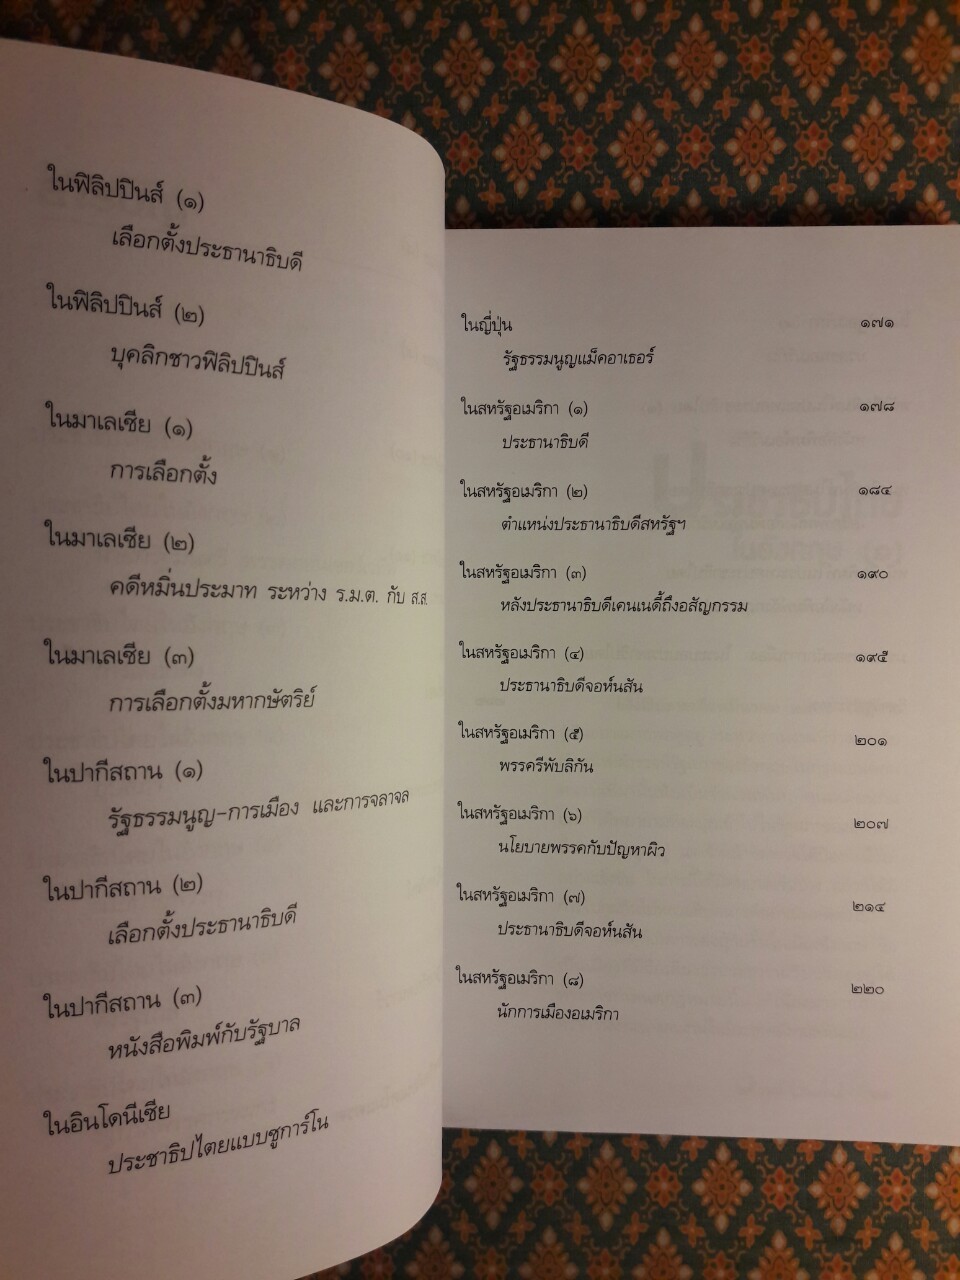 ในฟิลิปปินส์ (๑)
เลือกตั้งประธานาธิบดี
ในฟิลิปปินส์ (๒)
บุคลิกชาวฟิลิปปินส์
ในมาเลเซีย (๑)
การเลือกตั้ง
ในมาเลเซีย (๒)
คดีหมิ่นประมาท ระหว่าง ร.ม.ต. กับ ส.ส.
ในมาเลเซีย (๓)
การเลือกตั้งมหากษัตริย์
ในปากีสถาน (๑)
รัฐธรรมนูญ-การเมือง และการจลาจล
ในปากีสถาน (๒)
เลือกตั้งประธานาธิบดี
ในปากีสถาน (๓)
หนังสือพิมพ์กับรัฐบาล
ในอินโดนีเซีย
ประชาธิปไตยแบบซูการ์โน
ในญี่ปุ่น ๑๗๑
รัฐธรรมนูญแม็คอาเธอร์
ในสหรัฐอเมริกา (๑) ๑๗๘
ประธานาธิบดี
ในสหรัฐอเมริกา (๒) ๑๘๔
ตำแหน่งประธานาธิบดีสหรัฐฯ
ในสหรัฐอเมริกา (๓) ๑๙๐
หลังประธานาธิบดีเคนเนดี้ถึงอสัญกรรม
ในสหรัฐอเมริกา (๔) ๑๙๕
ประธานาธิบดีจอห์นสัน
ในสหรัฐอเมริกา (๕) ๒๐๑
พรรครีพับลิกัน
ในสหรัฐอเมริกา (๖) ๒๐๗
นโยบายพรรคกับปัญหาผิว
ในสหรัฐอเมริกา (๗) ๒๑๔
ประธานาธิบดีจอห์นสัน
ในสหรัฐอเมริกา (๘) ๒๒๐
นักการเมืองอเมริกา